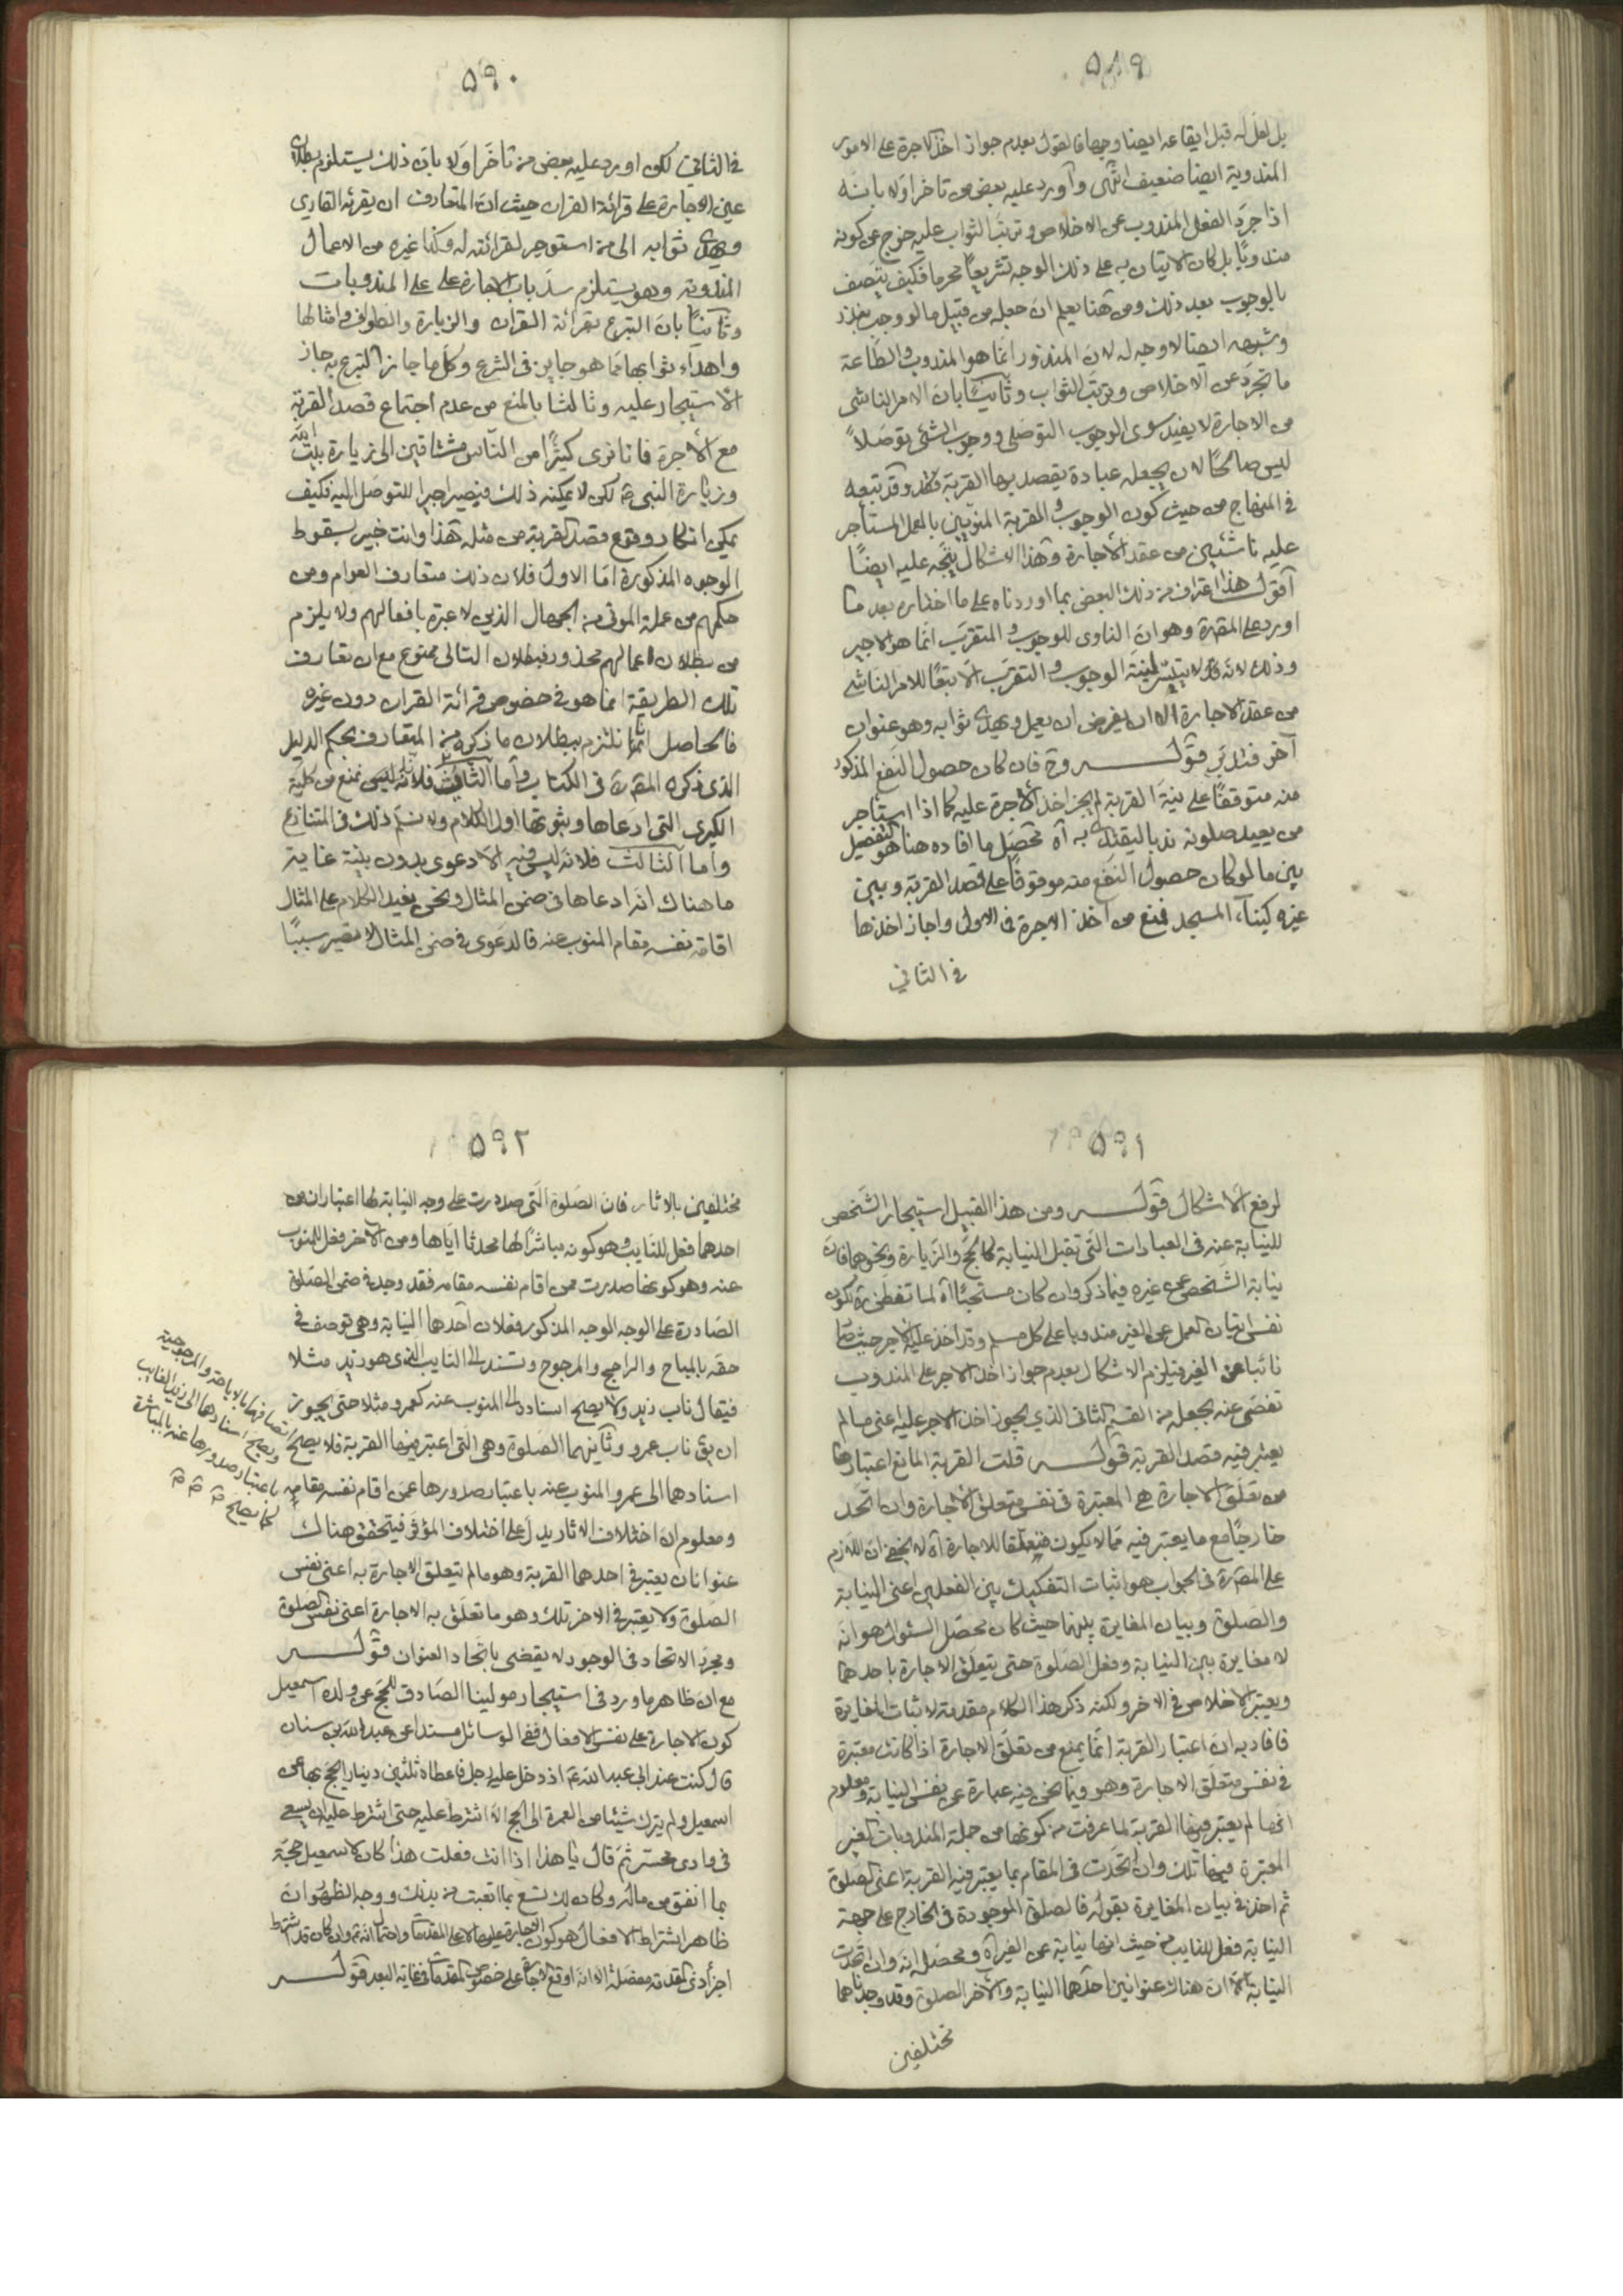 ٥٨٩
بل لعل له قبل ايقاعه ايضا وجها فالقول بعدم جواز اخذ الاجرة على الامور
المندوبة ايضا ضعيف انتهى وآورد عليه بعض من تاخر اولا بانه
اذا جرد الفعل المندوب عن الاخلاص وترتب الثواب عليه خرج عن كونه
مندوبًا بل كان الاتيان به على ذلك الوجه تشريعًا محرما فكيف يتصف
بالوجوب بعد ذلك ومن هنا يعلم ان جعله من قبيل ما لو وجب بنذر
وشبهه ايضا لا وجه له لان المنذور انما هو المندوب والطاعة
ما تجرد عن الاخلاص وترتب الثواب وثانيًا بان الامر الناشى
من الاجارة لا يفيد سوى الوجوب التوصلى ووجوب الشئ توصلاً
ليس صالحًا لان يجعله عبادة يقصد بها القربة وقد تبعه
فى المنهاج من حيث كون الوجوب والقربة المنويين بالعمل المستأجر
عليه ناشئين من عقد الأجارة وهذا الاشكال يتجه عليه ايضًا
آقول هذا اعتراف من ذلك البعض بما اوردناه على ما اختاره بعد ما
اورد على المصره وهو ان الناوى للوجوب والمتقرب انما هو الاجير
وذلك لانه قد لا يتيسّر لنية الوجوب والتقرب الا تبعًا للامر الناشى
من عقد الاجارة الا ان يفرض ان يعمل ويهدى ثوابه وهو عنوان
آخر فتدبر قوله وح فان كان حصول النفع المذكور
منه متوقفًا على نية القربة لم يجز اخذ الأجرة عليه كما اذا استاجر
من يعيد صلوته ندبا ليقتدى به آه محصل ما افاده هنا هو التفصيل
بين ما لو كان حصول النفع منه موقوفًا على قصد القربة وبين
غيره كبنآء المسجد فمنع من اخذ الاجرة فى الاول واجاز اخذها
فى الثاني
٥٩٠
فى الثاني لكن اورد عليه بعض من تاخر اولا بان ذلك يستلزم بطلان
عين الاجارة على قرائة القران حيث ان المتعارف ان يقرئه القاري
ويهدى ثوابه الى من استوجر لقرائته له وكذا غيره من الاعمال
المندوبة وهو يستلزم سد باب الاجارة على على المندوبات
وثانيًا بان التبرع بقرائة القران والزيارة والطواف وامثالها
واهداء ثوابها مما هو جايز فى الشرع وكل ما جاز التبرع به جاز
الاستيجار عليه وثالثا بالمنع من عدم اجتماع قصد القربة
مع الأجرة فانا نرى كثيرًا من الناس مشتاقين الى زيارة بيت الله
وزيارة النبى ص لكن لا يمكنه ذلك فيصير اجيرا للتوصل اليه فكيف
يمكن انكار وقوع قصد القربة من مثله هذا وانت خبير بسقوط
الوجوه المذكورة امّا الاول فلان ذلك متعارف العوام ومن
حكمهم من عملة الموتى من الجهال الذين لا عبرة بافعالهم ولا يلزم
من بطلان اعمالهم محذور فبطلان التالى ممنوع مع ان تعارف
تلك الطريقة انما هو فى خصوص قرائة القران دون غيره
فالحاصل انا نلتزم ببطلان ما ذكره من المتعارف بحكم الدليل
الذى ذكره المصره فى الكتاب وآما الثاني فلانه ليس نمنع من كلية
الكبرى التى ادعاها وثبوتها اول الكلام ولا نسلم ذلك فى المتنازع
واما آلثالث فلانه ليس فيه الا دعوى بدون بينة غاية
ما هناك انه ادعاها فى ضمن المثال ونحن نعيد الكلام على المثال
اقامة نفسه مقام المنوب عنه فالدعوى فى ضمن المثال لا تصير سببًا
٥٩١
لرفع الاشكال قوله ومن هذا القبيل استيجار الشخص
للنيابة عنه فى العبادات التى تقبل النيابة كالحج والزيارة ونحوهما فان
نيابة الشخص عن غيره فيما ذكر وان كان مستحبًا آه لما تفطن ره بكون
نفس اتيان العمل عن الغير مندوبا على كل مسلم وقد اخذ عليه الاجر حيث صار
نائبا عن الغير فيلزم الاشكال بعدم جواز اخذ الاجر على المندوب
تفصى عنه بجعله من القسم الثانى الذي يجوز اخذ الاجر عليه اعنى ما لم
يعتبر فيه قصد القربة قوله قلت القربة المانع اعتبارها
من تعلق الاجارة هى المعتبرة فى نفس متعلق الأجارة وان اتحد
خارجًا مع ما يعتبر فيه مما لا يكون متعلقا للاجارة آه لا يخفى ان اللازم
على المصره فى الجواب هو اثبات التفكيك بين الفعلين اعنى النيابة
والصلوة وبيان المغايرة بينهما حيث كان محصل السئوال هو انه
لا مغايرة بين النيابة وفعل الصلوة حتى يتعلق الاجارة باحدهما
ويعتبر الاخلاص فى الاخر ولكنه ذكر هذا الكلام مقدمة لاثبات المغايرة
فافاد به ان اعتبار القربة انما يمنع من تعلق الاجارة اذا كانت معتبرة
فى نفس متعلق الاجارة وهو فيما نحن فيه عبارة عن نفس النيابة ومعلوم
انها لم يعتبر فيها القربة لما عرفت من كونها من جملة المندوبات الغير
المعتبرة فيها تلك وان اتحدت فى المقام بما يعتبر فيه القربة اعنى الصلوة
ثم اخذ فى بيان المغايرة بقوله فالصلوة الموجودة فى الخارج على جهة
النيابة فعل للنايب من حيث انها نيابة عن الغير آه ومحصله انه وان اتحدت
النيابة الا ان هناك عنوانين احدهما النيابة والأخر الصلوة وقد وجدناهما
مختلفين
٥٩٢
مختلفين بالاثار فان الصلوة التى صدرت على وجه النيابة لها اعتباران من
احدهما فعل للنايب وهو كونه مباشرًا لها محدثا اياها ومن الآخر فعل للمنوب
عنه وهو كونها صدرت ممن اقام نفسه مقامه فقد وجد فى ضمن الصلوة
الصادرة على الوجه الوجه المذكور فعلان آحدهما النيابة وهى توصف فى
حقه بالمباح والراجح والمرجوح وتستند الى النايب الذى هو زيد مثلا
فيقال ناب زيد ولا يصح اسناده الى المنوب عنه كعمرو مثلا حتى يجوز
ان يق ناب عمرو وثآنيهما الصلوة وهى التى اعتبر فيها القربة فلا يصح اتصافها بالاباحة والمرجوحية
ويصح اسنادها الى زيد النايب
باعتبار صدورها عنه بالمباشرة
كما يصح
اسنادها الى عمرو المنوب عنه باعتبار صدورها عمن اقام نفسه مقامه
ومعلوم ان اختلاف الاثار يدل على اختلاف المؤثر فيتحقق هناك
عنوانان يعتبر فى احدهما القربة وهو ما لم يتعلق الاجارة به اعنى نفس
الصلوة ولا يعتبر فى الاخر تلك وهو ما تعلق به الاجارة اعنى نفس الصلوة
ومجرد الاتحاد فى الوجود لا يقضى باتحاد العنوان قوله
مع ان ظاهر ما ورد فى استيجار مولينا الصادق للحج عن ولده اسمعيل
كون الاجارة على نفس الافعال ففى الوسائل مسندا عن عبد الله بن سنان
قال كنت عند ابي عبد الله ع اذ دخل عليه رجل فاعطاه ثلثين دينارا يحج بها عن
اسمعيل ولم يترك شيئا من العمرة الى الحج الا اشترط عليه حتى اشترط عليه ان يسعى
فى وادى محسر ثم قال يا هذا اذا انت فعلت هذا كان لاسمعيل حجة
بما انفق من ماله وكان لك تسع بما اتعبت من بدنك ووجه الظهور ان
ظاهر اشتراط الافعال هو كون الاجارة عليها لا على المقدمات واحتمال انه ثم وان كان قد اشترط
اجزأ ذى المقدمة مفصلة الا انه اوقع الاجارة على خصوص المقدمات فى غاية البعد قوله